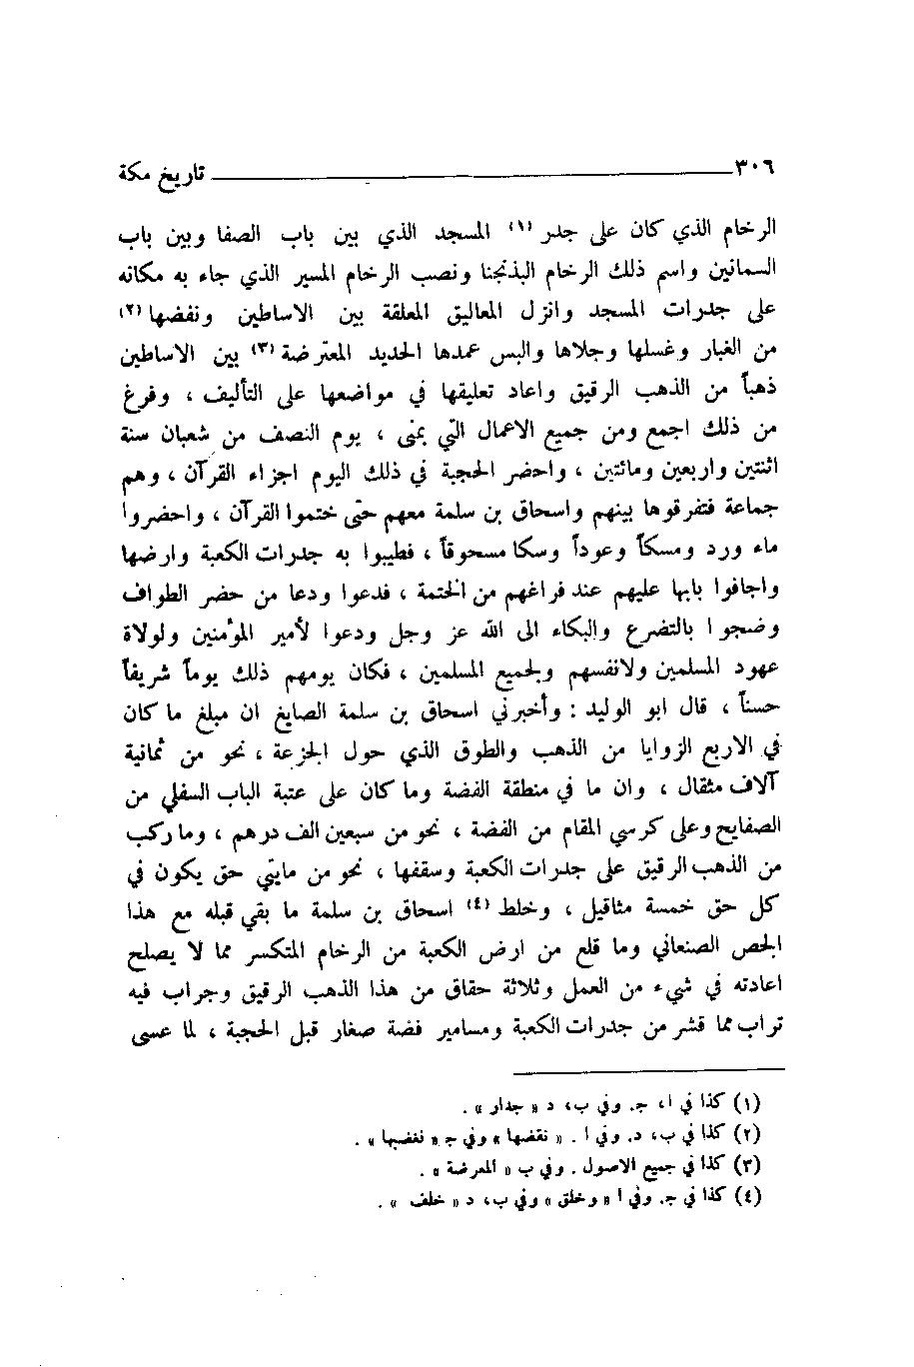 ٣٠٦ تاريخ مكة
الرخام الذي كان على جدر (١) المسجد الذي بين باب الصفا وبين باب
السمانين واسم ذلك الرخام البذنجنا ونصب الرخام المسير الذي جاء به مكانه
على جدرات المسجد وانزل المعاليق المعلقة بين الاساطين ونفضها (٢)
من الغبار وغسلها وجلاها والبس عمدها الحديد المعترضة (٣) بين الاساطين
ذهباً من الذهب الرقيق واعاد تعليقها في مواضعها على التأليف ، وفرغ
من ذلك اجمع ومن جميع الاعمال التي بمنى ، يوم النصف من شعبان سنة
اثنتين واربعين ومائتين ، واحضر الحجبة في ذلك اليوم اجزاء القرآن ، وهم
جماعة فتفرقوها بينهم واسحاق بن سلمة معهم حتى ختموا القرآن ، واحضروا
ماء ورد ومسكاً وعوداً وسكا مسحوقاً ، فطيبوا به جدرات الكعبة وارضها
واجافوا بابها عليهم عند فراغهم من الختمة ، فدعوا ودعا من حضر الطواف
وضجوا بالتضرع والبكاء الى الله عز وجل ودعوا لأمير المؤمنين ولولاة
عهود المسلمين ولانفسهم ولجميع المسلمين ، فكان يومهم ذلك يوماً شريفاً
حسناً ، قال ابو الوليد : وأخبرني اسحاق بن سلمة الصايغ ان مبلغ ما كان
في الاربع الزوايا من الذهب والطوق الذي حول الجزعة ، نحو من ثمانية
آلاف مثقال ، وان ما في منطقة الفضة وما كان على عتبة الباب السفلي من
الصفايح وعلى كرسي المقام من الفضة ، نحو من سبعين الف درهم ، وما ركب
من الذهب الرقيق على جدرات الكعبة وسقفها ، نحو من مايتي حق يكون في
كل حق خمسة مثاقيل ، وخلط (٤) اسحاق بن سلمة ما بقي قبله مع هذا
الجص الصنعاني وما قلع من ارض الكعبة من الرخام المتكسر مما لا يصلح
اعادته في شيء من العمل وثلاثة حقاق من هذا الذهب الرقيق وجراب فيه
تراب مما قشر من جدرات الكعبة ومسامير فضة صغار قبل الحجبة ، لما عسى
(١) كذا في ا، ج. وفي ب، د « جدار » .
(٢) كذا في ب، د. وفي ا . « نقضها » وفي ج « نغضها » .
(٣) كذا في جميع الاصول . وفي ب « المعرضة » .
(٤) كذا في ج. وفي ا « وخلق » وفي ب، د « خلف » .